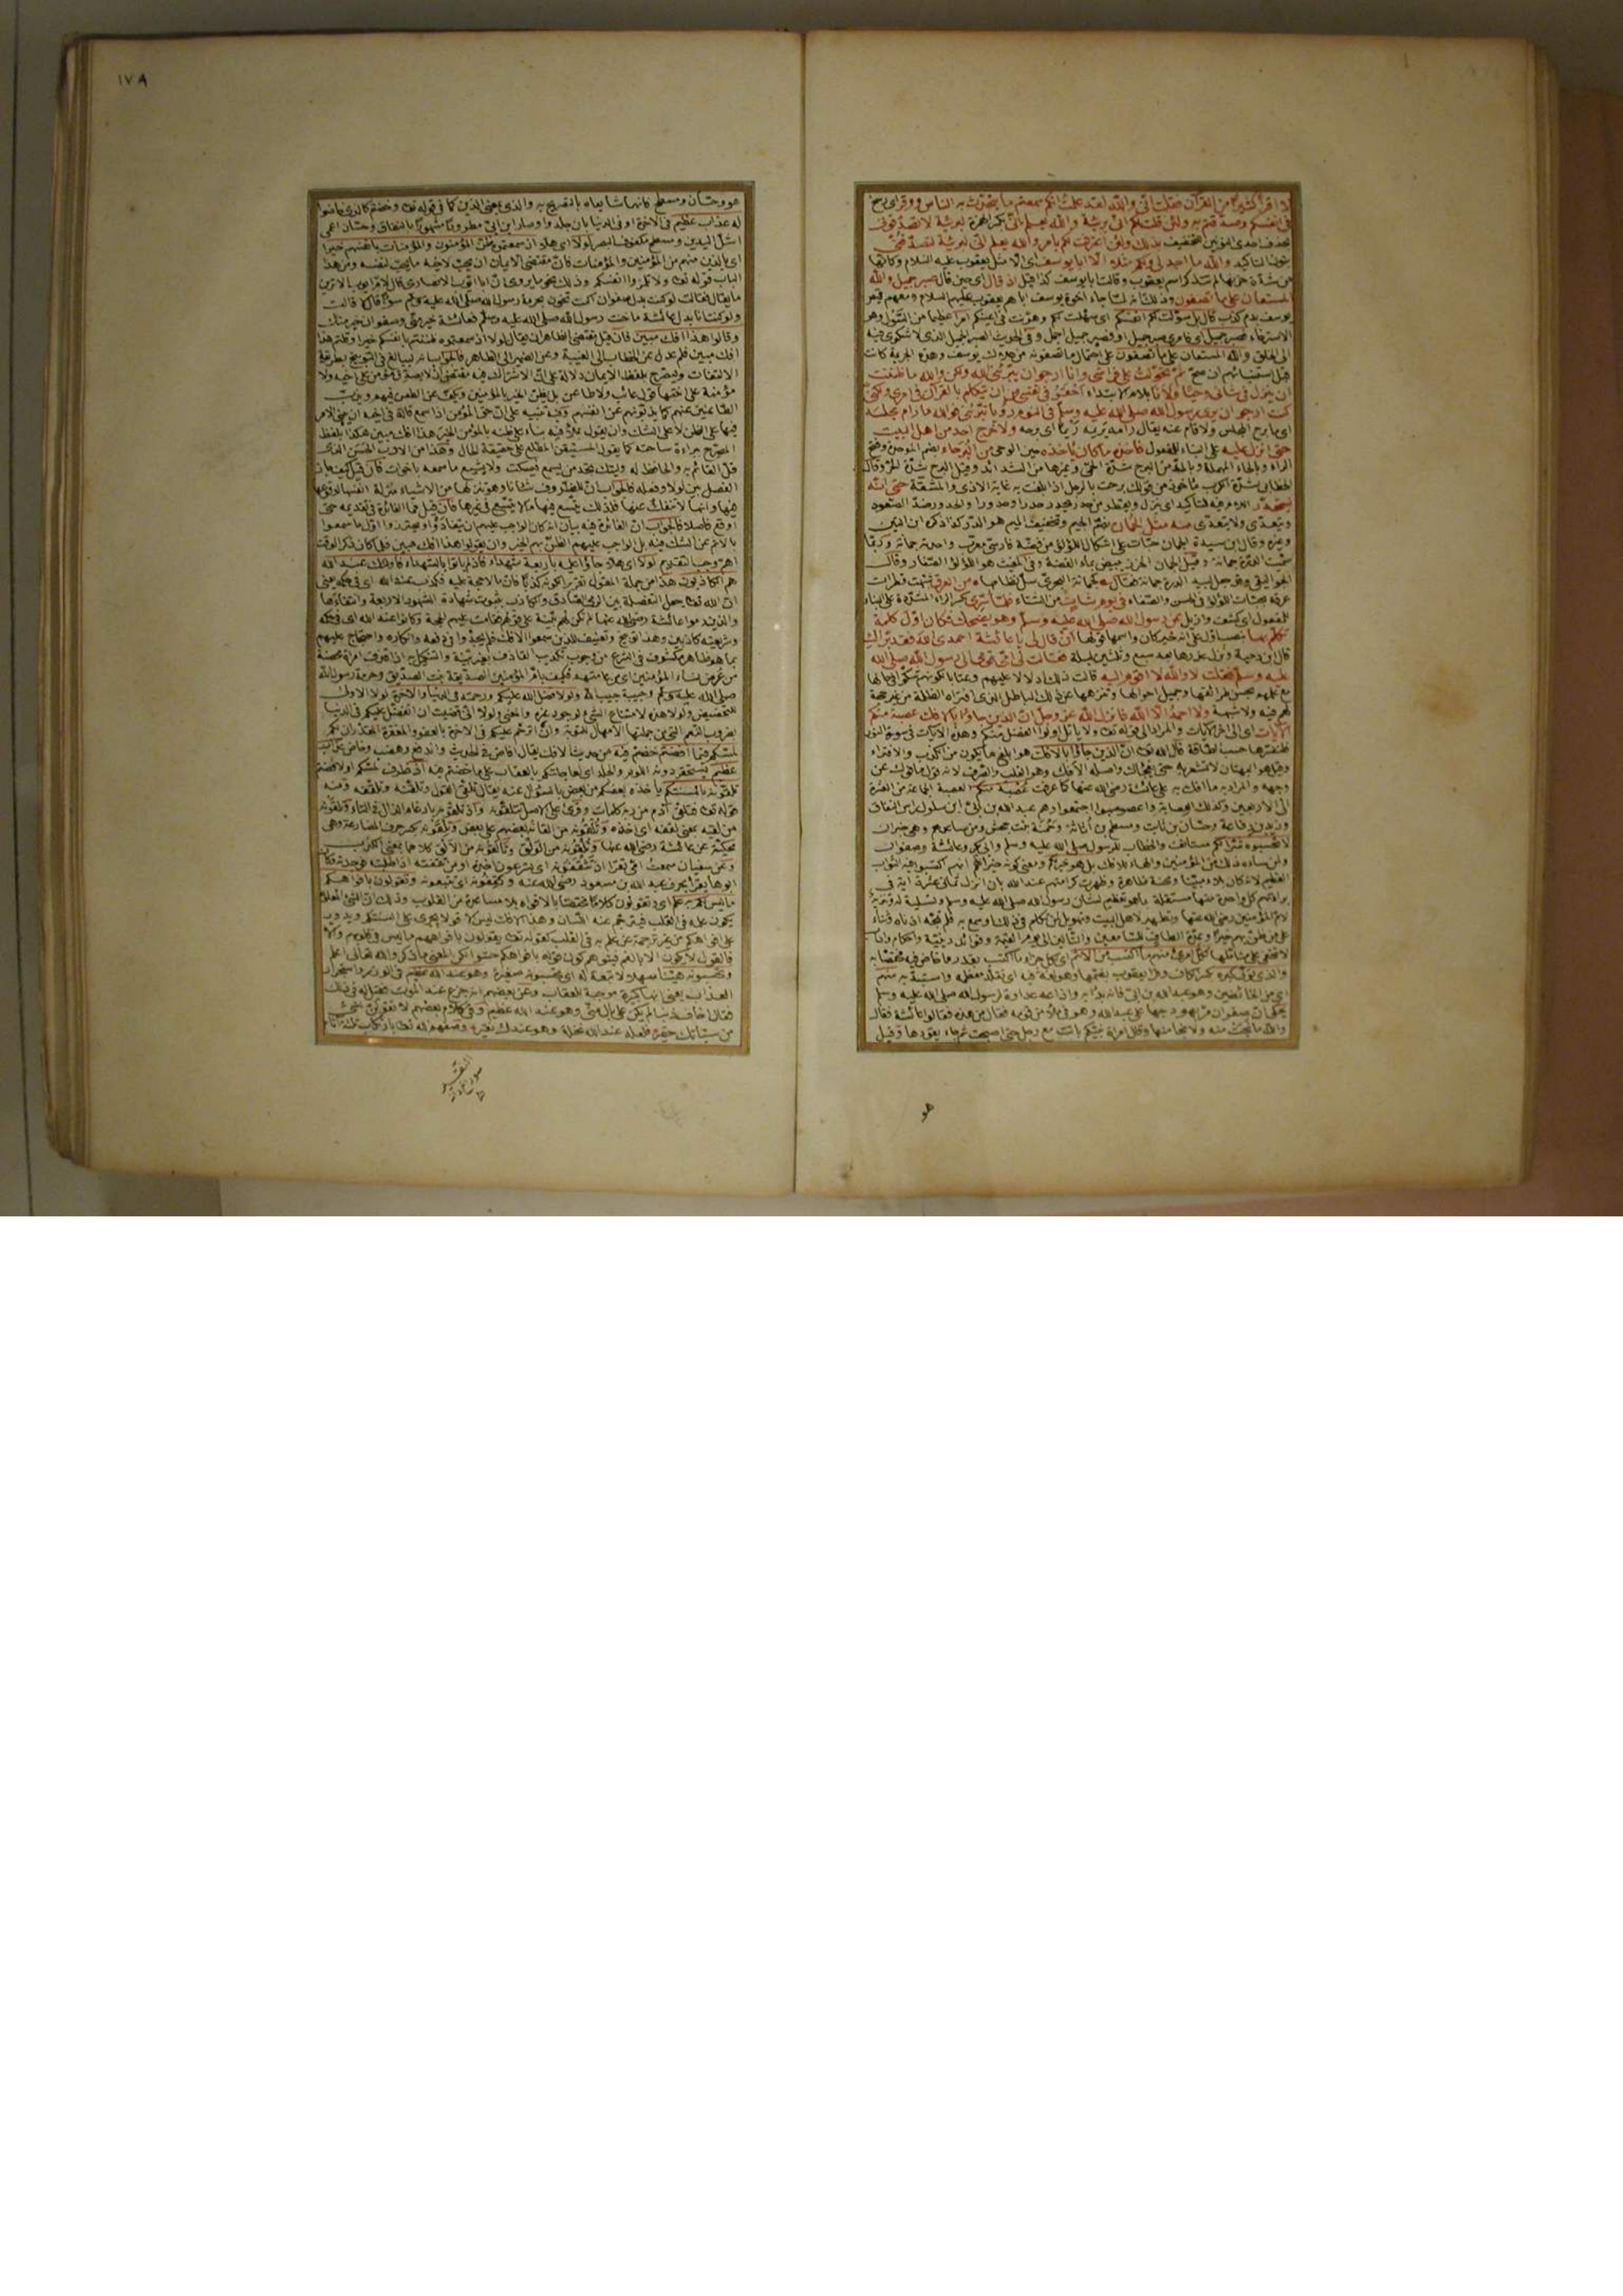 لا اقرأ كثيرا من القرآن فقلت اني والله لقد علمت انكم سمعتم ما يتحدث به الناس ووقر اي رسخ
في انفسكم وصدقتم به ولئن قلت لكم اني بريئة والله يعلم اني بكسر الهمزة لبريئة لا تصدقونني
بحذف احدى النونين للتخفيف بذلك ولئن اعترفت لكم بامر والله يعلم اني لبريئة لتصدقني
بنون التاكيد والله ما اجد لي ولكم مثلا الا ابا يوسف اي الا مثل يعقوب عليه السلام وكانها
من شدة حزنها لم تتذكر اسم يعقوب وقالت ابا يوسف كذا قيل اذ قال اي حين قال فصبر جميل والله
المستعان على ما تصفون وذلك انه لما جاء اخوة يوسف اباهم يعقوب عليهم السلام ومعهم قميص
يوسف بدم كذب قال بل سولت لكم انفسكم اي سهلت لكم وهونت في اعينكم امرا عظيما من السول وهو
الاسترخاء فصبر جميل اي فامري صبر جميل او فصبر جميل اجمل وفي الحديث الصبر الجميل الذي لا شكوى فيه
الى الخلق والله المستعان على ما تصفون على احتمال ما تصفونه من هلاك يوسف وهذه الجريمة كانت
قبل استنبائهم ان صح ثم تحولت على فراشي وانا ارجو ان يبرئني الله ولكن والله ما ظننت
ان ينزل في شأني وحيا ولانا بلام الابتداء احقر في نفسي من ان يتكلم بالقرآن في امري ولكني
كنت ارجو ان يرى رسول الله صلى الله عليه وسلم في النوم رؤيا تبرئني فوالله ما رام مجلسه
اي ما برح المجلس ولا قام عنه يقال رامه يريمه ريما اي برحه ولا خرج احد من اهل البيت
حتى انزل عليه على البناء للمفعول فاخذه ما كان ياخذه حين الوحي من البرحاء بضم الموحدة وفتح
الراء وبالحاء المهملة وبالمد من البرح شدة الحمى وغيرها من الشدائد وقيل البرح شدة الحر وقال
الخطابي شدة الكرب ماخوذ من قولك برحت بالرجل اذا بلغت به غاية الاذى والمشقة حتى انه
ليتحدر اللام فيه للتاكيد اي ينزل ويقطر من حدر يحدر حدرا وحدورا والحدور ضد الصعود
ويتعدى ولا يتعدى منه مثل الجمان بضم الجيم وتخفيف الميم هو الدر كذا ذكره ابن التين
وغيره وقال ابن سيدة الجمان حبات على اشكال اللؤلؤ من فضة فارسي معرب واحدته جمانة وربما
سميت الدرة جمانة وقيل الجمان الخرز يبيض بماء الفضة وفي المغيث هو اللؤلؤ الصغار وقال
الجواليقي وقد جعل لبيد الدرة جمانة فقال كجمانة البحري سل نظامها من العرق شبهت قطرات
عرقه بحبات اللؤلؤ في الحسن والصفاء في يوم شات من الشتاء فلما سري بكسر الراء المشددة على البناء
للمفعول اي كشف وازيل عن رسول الله صلى الله عليه وسلم وهو يضحك فكان اول كلمة
تكلم بها بنصب اول على انه خبر كان واسمها قولها ان قال لي يا عائشة احمدي الله فقد برأك الله
قال ابن دحية ونزل عذرها بعد سبع وثلثين ليلة فقالت لي امي قومي الى رسول الله صلى الله
عليه وسلم فقلت لا والله لا اقوم اليه قالت ذلك ادلالا عليهم وعتابا لكونهم شكوا في حالها
مع علمهم بحسن طرائقها وجميل احوالها وتنزهها عن ذلك الباطل الذي افتراه الظلمة من غير حجة
لهم فيه ولا شبهة ولا احمد الا الله فانزل الله عز وجل ان الذين جاؤا بالافك عصبة منكم
الآيات اي الى آخر الآيات والمراد الى قوله تعالى ولا يأتل اولوا الفضل منكم وهذه الآيات في سورة النور
فلنفسرها حسب الطاقة قال الله تعالى ان الذين جاؤا بالافك هو ابلغ ما يكون من الكذب والافتراء
وقيل هو البهتان لا تشعر به حتى يفجأك واصله الافك وهو القلب والصرف لانه قول مافوك عن
وجهه والمراد به ما افك به على عائشة رضي الله عنها كما عرفت عصبة منكم العصبة الجماعة من العشرة
الى الاربعين وكذلك العصابة واعصوصبوا اجتمعوا وهم عبد الله بن ابي ابن سلول رأس النفاق
وزيد بن رفاعة وحسان بن ثابت ومسطح بن اثاثة وحمنة بنت جحش ومن ساعدهم وهي خبر ان
لا تحسبوه شرا لكم مستانف والخطاب للرسول صلى الله عليه وسلم وابي بكر وعائشة وصفوان
ولمن ساءه ذلك من المؤمنين والهاء للافك بل هو خير لكم ومعنى كونه خيرا لهم انهم اكتسبوا فيه الثواب
العظيم لانه كان بلاء مبينا ومحنة ظاهرة وظهرت كرامتهم عند الله بان انزل ثماني عشرة آية في
براءتهم كل واحدة منها مستقلة بما هو تعظيم لشان رسول الله صلى الله عليه وسلم وتسلية له وتنزيه
لام المؤمنين رضي الله عنها وتطهير لاهل البيت وتهويل لمن تكلم في ذلك او سمع به فلم تمجه اذناه وثناء
على من ظن بهم خيرا وعدة الطاف للسامعين والتالين الى يوم القيمة وفوائد دينية واحكام وآداب
لا تخفى على متأمليها لكل امرئ منهم ما اكتسب من الاثم اي لكل جزاء ما اكتسب بقدر ما خاض فيه مختصا به
والذي تولى كبره بكسر الكاف وقرأ يعقوب بضمها وهو لغة فيه اي تقلد معظمه واستبد به منهم
اي من الخائضين وهو عبد الله بن ابي فانه بدأ به واذاعه عداوة لرسول الله صلى الله عليه وسلم
يحكى ان صفوان مر بهودجها على عبد الله وهو في ملأ من قومه فقال من هذه فقالوا عائشة فقال
والله ما نجت منه ولا نجا منها وقال امرأة نبيكم باتت مع رجل حتى اصبحت ثم جاء يقودها وقيل
هو
١٧٨
هو وحسان ومسطح فانهما شايعاه بالتصريح به والذي بمعنى الذين كما في قوله تعالى وخضتم كالذي خاضوا
له عذاب عظيم في الآخرة او في الدنيا بان جلدوا وصار ابن ابي مطرودا مشهورا بالنفاق وحسان اعمى
اشل اليدين ومسطح مكفوف البصر لولا اي هلا اذ سمعتموه ظن المؤمنون والمؤمنات بانفسهم خيرا
اي بالذين منهم من المؤمنين والمؤمنات فان مقتضى الايمان ان يحب لاخيه ما يحب لنفسه ومن هذا
الباب قوله تعالى ولا تلمزوا انفسكم وذلك نحو ما يروى ان ابا ايوب الانصاري قال لام ايوب الا ترين
ما يقال فقالت لو كنت بدل صفوان اكنت تخون بحرمة رسول الله صلى الله عليه وسلم سوءا قال لا قالت
ولو كنت انا بدل عائشة ما خنت رسول الله صلى الله عليه وسلم فعائشة خير مني وصفوان خير منك
وقالوا هذا افك مبين فان قيل مقتضى الظاهر ان يقال لولا اذ سمعتموه ظننتم بانفسكم خيرا وقلتم هذا
افك مبين فلم عدل عن الخطاب الى الغيبة وعن الضمير الى الظاهر فالجواب انه ليبالغ في التوبيخ بطريقة
الالتفات وليصرح بلفظ الايمان دلالة على ان الاشتراك فيه مقتض ان لا يصدق مؤمن على اخيه ولا
مؤمنة على اختها قول عائب ولا طاعن بل يظن الخير بالمؤمنين ويكف عن الطعن فيهم ويذب
الطاعنين عنهم كما يذبونهم عن انفسهم وفيه تنبيه على ان حق المؤمن اذا سمع قالة في اخيه ان يبني الامر
فيها على الظن لا على الشك وان يقول بملء فيه بناء على ظنه بالمؤمن الخير هذا افك مبين هكذا بلفظ
المصرح ببراءة ساحته كما يقول المستيقن المطلع على حقيقة الحال وهذا من الادب الحسن الذي
قل القائم به والحافظ له وليتك تجد من يسمع فيسكت ولا يشيع ما سمعه باخوات فان قيل كيف جاز
الفصل بين لولا وفعله فالجواب ان للظروف شانا وهو تنزلها من الاشياء منزلة انفسها لوقوعها
فيها وانها لا تنفك عنها فلذلك يتسع فيها ما لا يتسع في غيرها فان قيل فما الفائدة في تقديمه حتى
اوقع فاصلا فالجواب ان الفائدة فيه بيان انه كان الواجب عليهم ان يتفادوا ويحترزوا اول ما سمعوا
بالاثم عن الشك فيه بل الواجب عليهم الظن بهم الخير وان يقولوا هذا افك مبين فلما كان ذكر الوقت
اهم وجب التقديم لولا اي هلا جاؤا عليه باربعة شهداء فاذ لم يأتوا بالشهداء فاولئك عند الله
هم الكاذبون هذا من جملة المقول تقريرا لكونه كذبا فان ما لا حجة عليه فكذب عند الله اي في حكمه يعني
ان الله تعالى جعل التفصلة بين الرمي الصادق والكاذب بثبوت شهادة الشهود الاربعة وانتفاءها
والذين رموا عائشة رضي الله عنها لم تكن لهم بينة على قولهم فقامت عليهم الحجة وكانوا عند الله اي في حكمه
وشريعته كاذبين وهذا توبيخ وتعنيف للذين سمعوا الافك فلم يجدوا في دفعه وانكاره واحتجاج عليهم
بما هو ظاهر مكشوف في الشرع من وجوب تكذيب القاذف بغير بينة والتنكيل به اذا قذف امرأة محصنة
من عرض نساء المؤمنين اي من عامتهن فكيف بام المؤمنين الصديقة بنت الصديق وحرمة رسول الله
صلى الله عليه وسلم وحبيبة حبيب الله ولولا فضل الله عليكم ورحمته في الدنيا والآخرة لولا الاولى
للتحضيض ولولا هذه لامتناع الشيء لوجود غيره والمعنى ولولا اني قضيت ان اتفضل عليكم في الدنيا
بضروب النعم التي من جملتها الامهال للتوبة وان اترحم عليكم في الآخرة بالعفو والمغفرة المقدران لكم
لمسكم فيما افضتم خضتم فيه من حديث الافك يقال افاض في الحديث واندفع وهضب وخاض عذاب
عظيم يستحقر دونه اللوم والجلد اي لعاجلتكم بالعقاب على ما خضتم فيه اذ ظرف لمسكم او لافضتم
تلقونه بالسنتكم يأخذه بعضكم من بعض بالسؤال عنه يقال تلقى القول وتلقنه وتلقفه ومنه
قوله تعالى فتلقى آدم من ربه كلمات وقرئ على الاصل تتلقونه واذ تلقونه بادغام الذال في التاء وتلقونه
من لقيه بمعنى لقفه اي اخذه وتلقونه من القائه بعضهم على بعض وتلقونه بكسر حرف المضارعة وهي
محكية عن عائشة رضي الله عنها وتلقونه من الولق وتألقونه من الالق كلاهما بمعنى الكذب
وعن سفيان سمعت امي تقرأ اذ تثقفونه اي تسرعون اخذه او من ثقفته اذا طلبته فوجدته وكان
ابوها يقرأ بحرف عبد الله بن مسعود رضي الله عنه وتقفونه اي تتبعونه وتقولون بافواهكم
ما ليس لكم به علم اي وتقولون كلاما مختصا بالافواه بلا مساعدة من القلوب وذلك ان الشيء المعلوم
يكون علمه في القلب فيترجم عنه اللسان وهذا الافك ليس الا قولا يجري على السنتكم ويدور
على افواهكم من غير ترجمة عن علم به في القلب كقوله تعالى يقولون بافواههم ما ليس في قلوبهم والا
فالقول لا يكون الا بالفم فيتوهم كون قوله بافواهكم حشوا لكن المعنى ما ذكر والله تعالى اعلم
وتحسبونه هينا سهلا لا تبعة له اي تحسبونه صغيرة وهو عند الله عظيم في الوزر واستجرار
العذاب يعني انها كبيرة موجبة للعقاب وعن بعضهم انه جزع عند الموت فقيل له في ذلك
فقال اخاف ذنبا لم يكن على بال مني وهو عند الله عظيم وفي كلام بعضهم لا تقولن لشيء
من سيئاتك حقير فلعله عند الله نخلة وهو عندك نقير وصفهم الله تعالى بارتكاب ثلثة آثام